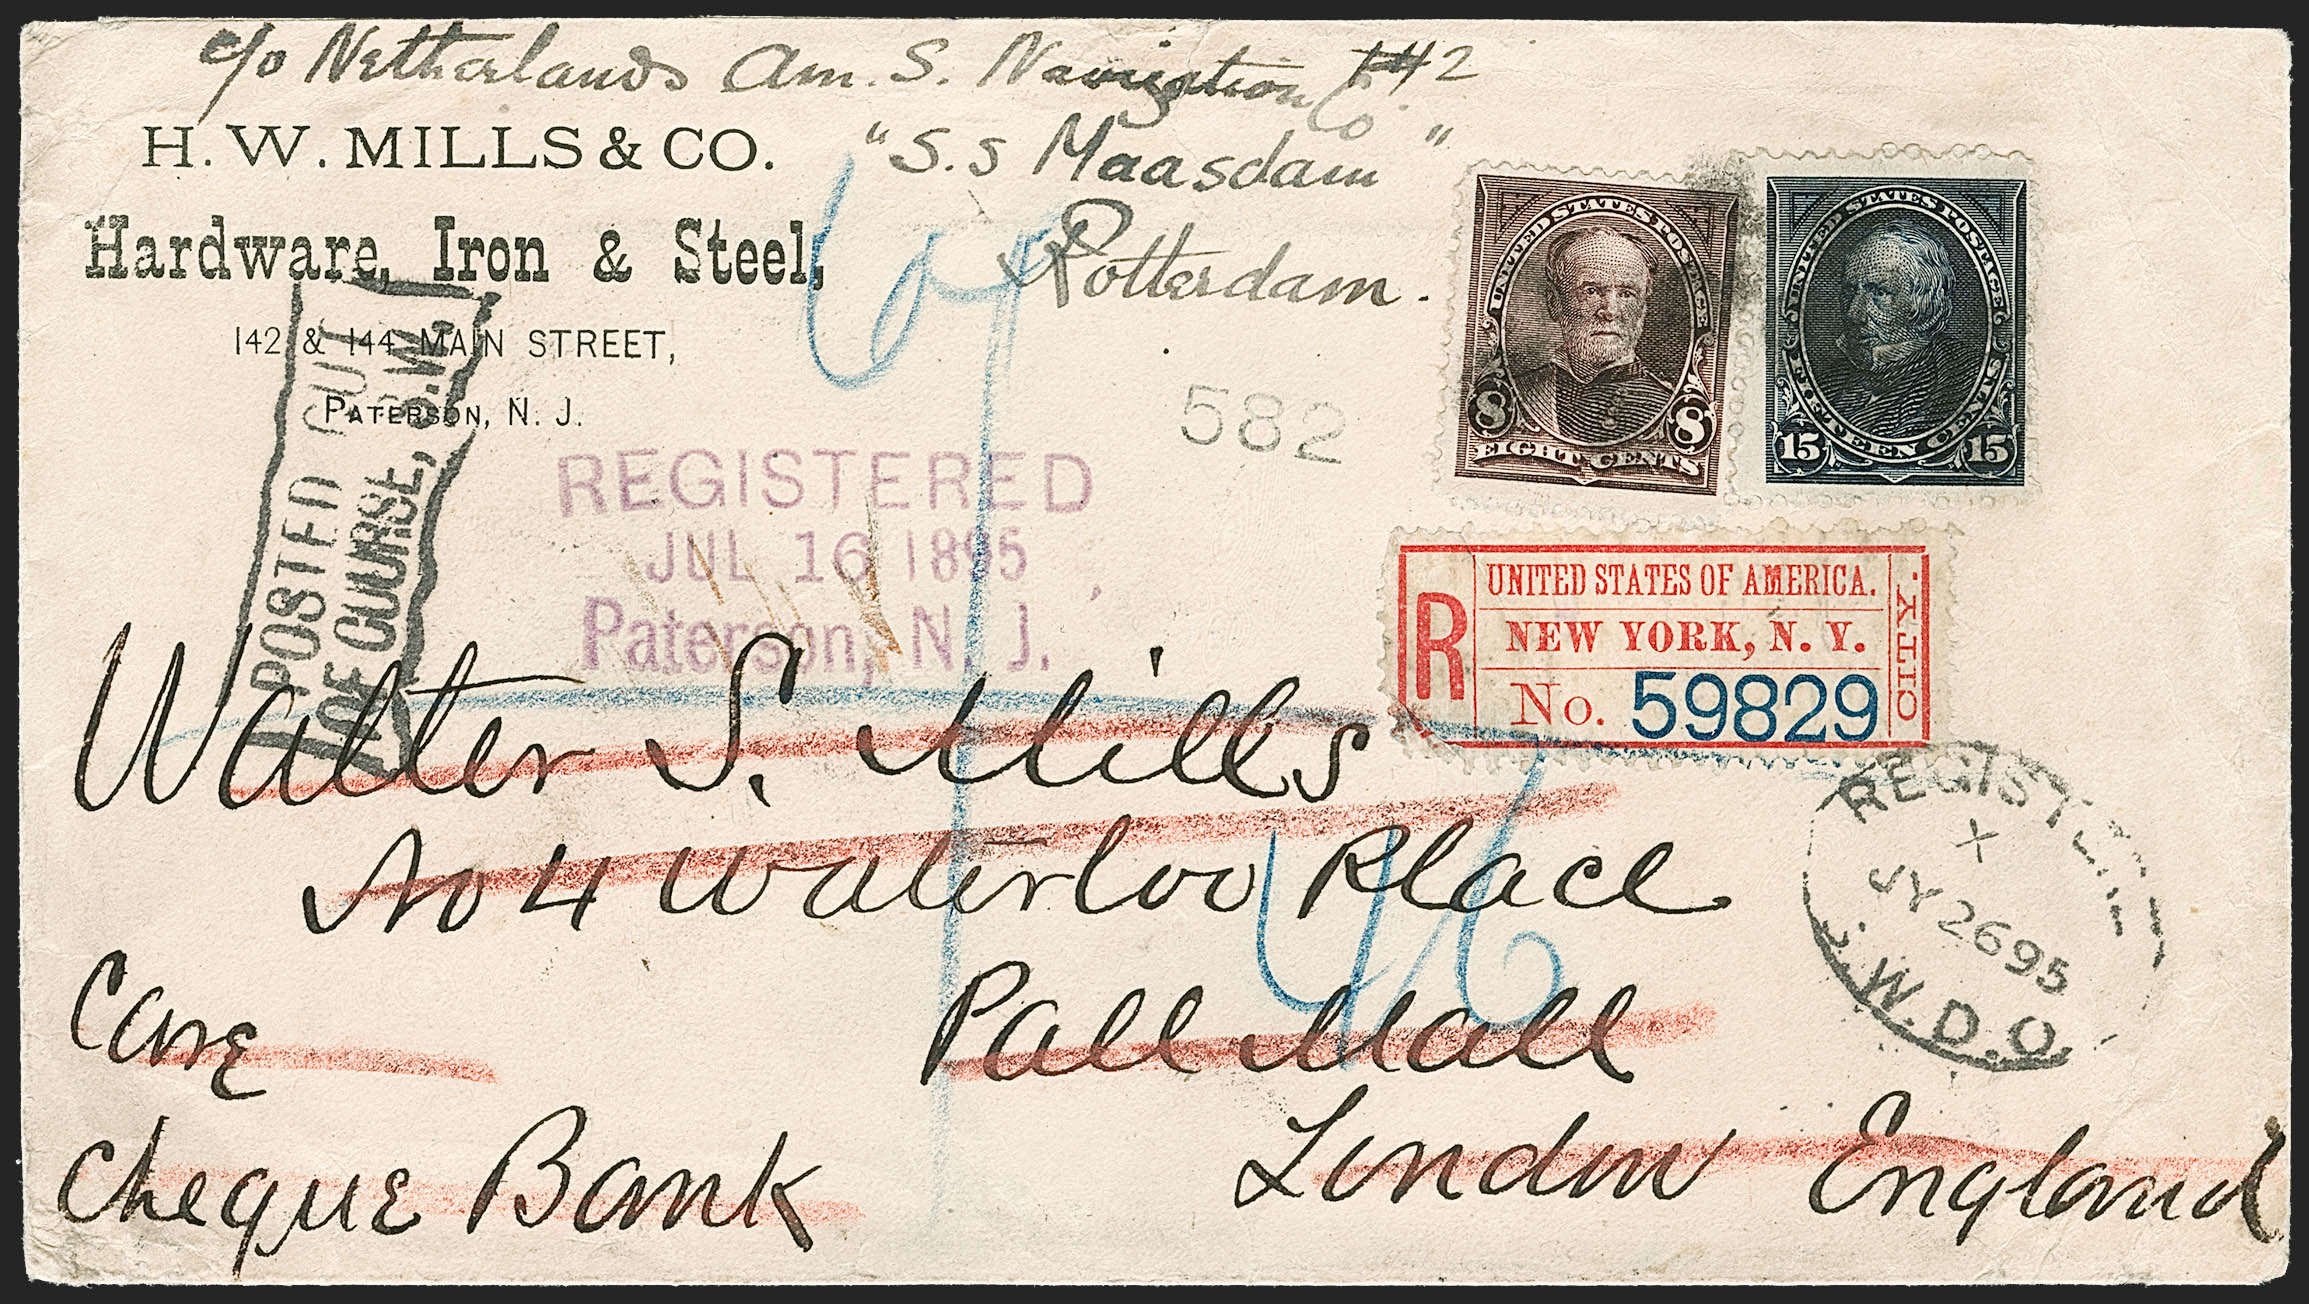 c/o Netherlands Am. S. Navigation Co. 2
H. W. MILLS & CO.
"S.s Maasdam"
Hardware, Iron & Steel,
Rotterdam.
142 & 144 MAIN STREET,
PATERSON, N. J.
POSTED OUT
OF COURSE, S.W.
582
REGISTERED
JUL 16 1895
Paterson, N. J.
UNITED STATES POSTAGE
8 8
EIGHT CENTS
UNITED STATES POSTAGE
15 15
FIFTEEN CENTS
R
UNITED STATES OF AMERICA.
NEW YORK, N. Y.
No. 59829
CITY.
Walter S. Mills
No 4 Waterloo Place
Care
Pall Mall
Cheque Bank
London England
46
REGISTERED
X
JY 26 95
S.W.D.O.